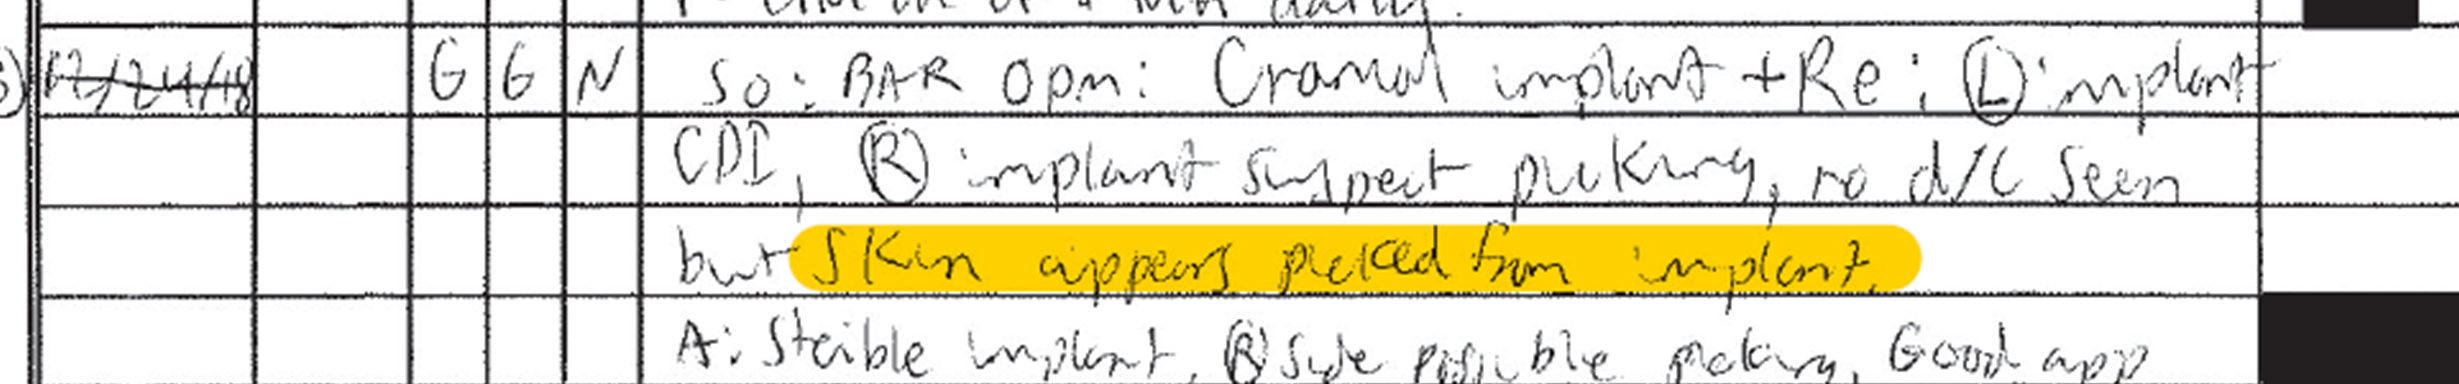 12/24/18 G G N SO: BAR Opm: Cranial implant + Re: (L) implant
CDI, (R) implant suspect picking, no d/c seen
but skin appears picked from implant.
A: Stable implant, (R) side possible picking, Good app